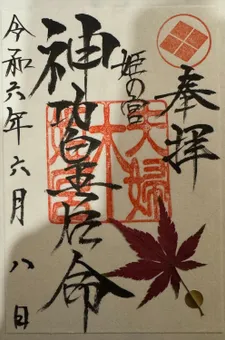 奉拝
姫の宮
神功皇后命
夫婦
木
令和六年六月八日